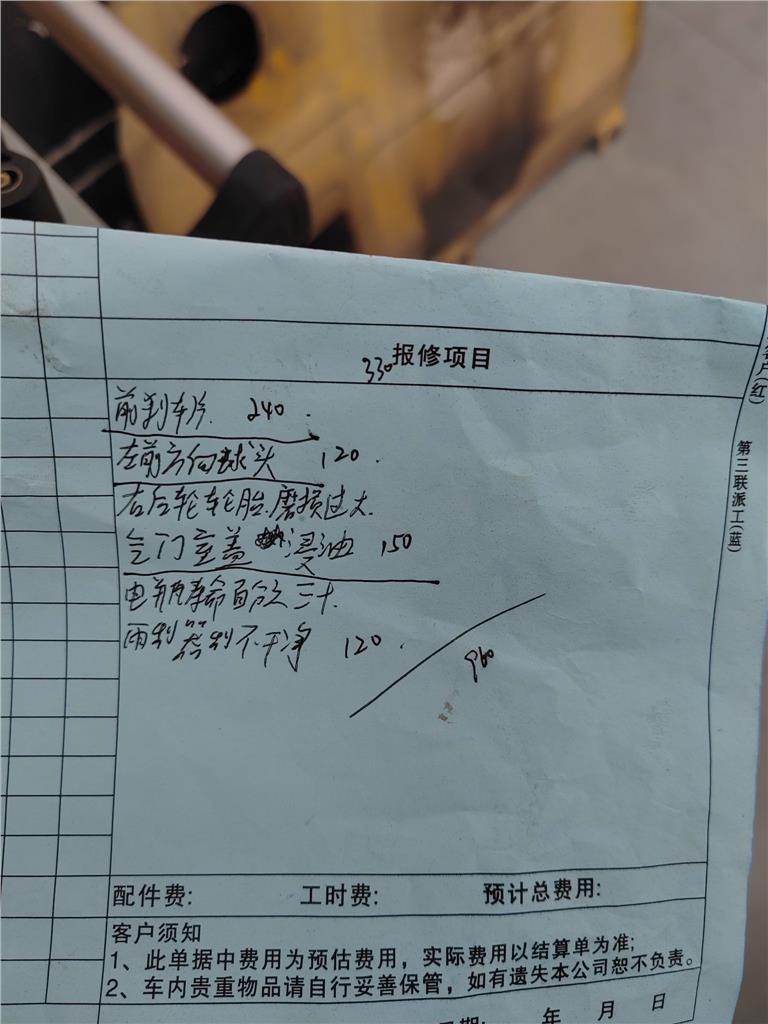 330 报修项目
前刹车片 240.
左前方向球头 120.
右后轮轮胎磨损过大.
气门室盖 浸油 150
电瓶寿命百分之三十.
雨刮器刮不干净 120.
960
配件费: 工时费: 预计总费用:
客户须知
1、此单据中费用为预估费用，实际费用以结算单为准;
2、车内贵重物品请自行妥善保管，如有遗失本公司恕不负责。
年 月 日
客户(红)
第三联派工(蓝)